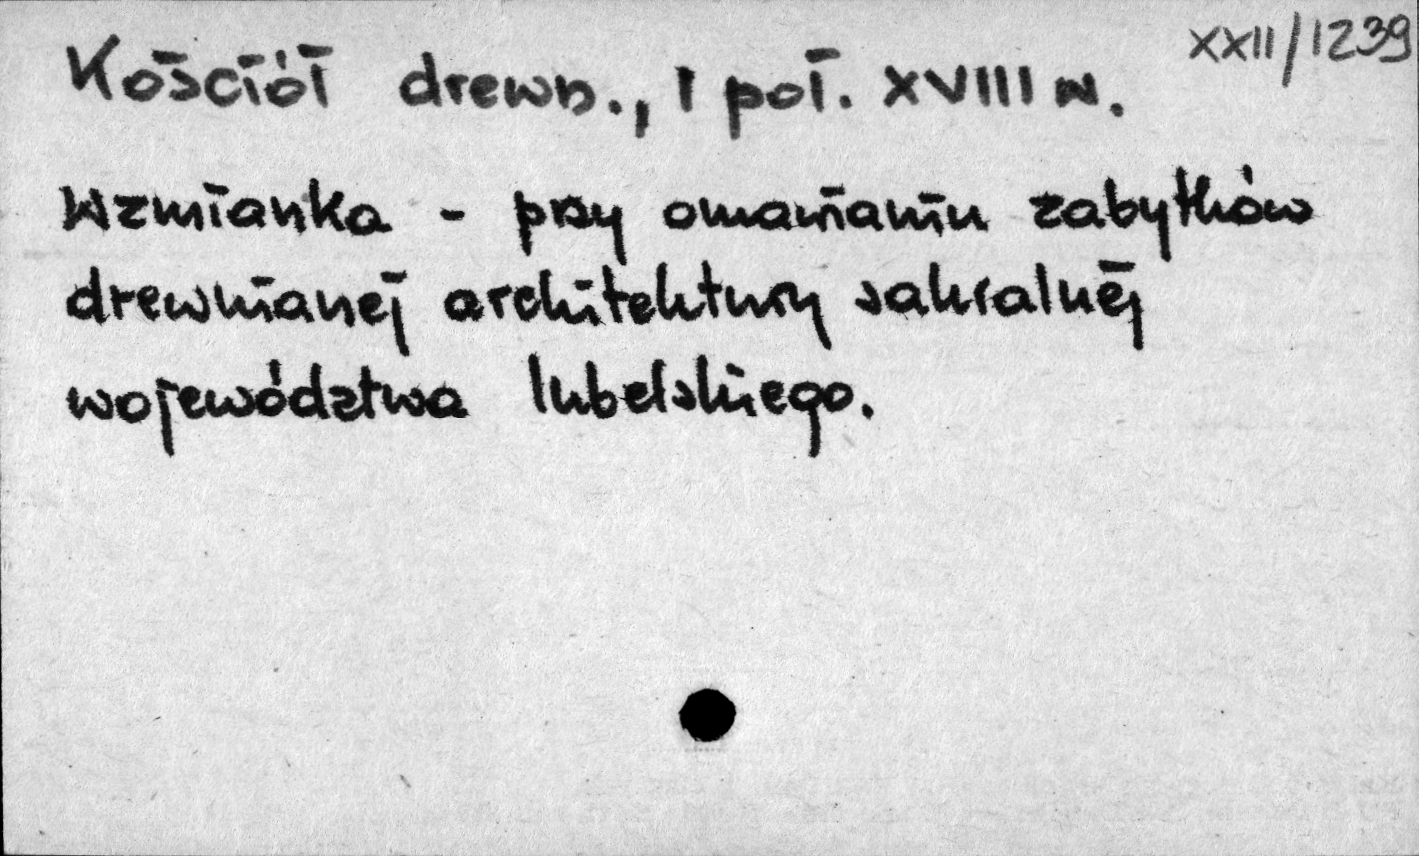 XXII/1239
Kościół drewn., I poł. XVIII w.
Wzmianka - przy omawianiu zabytków
drewnianej architektury sakralnej
województwa lubelskiego.